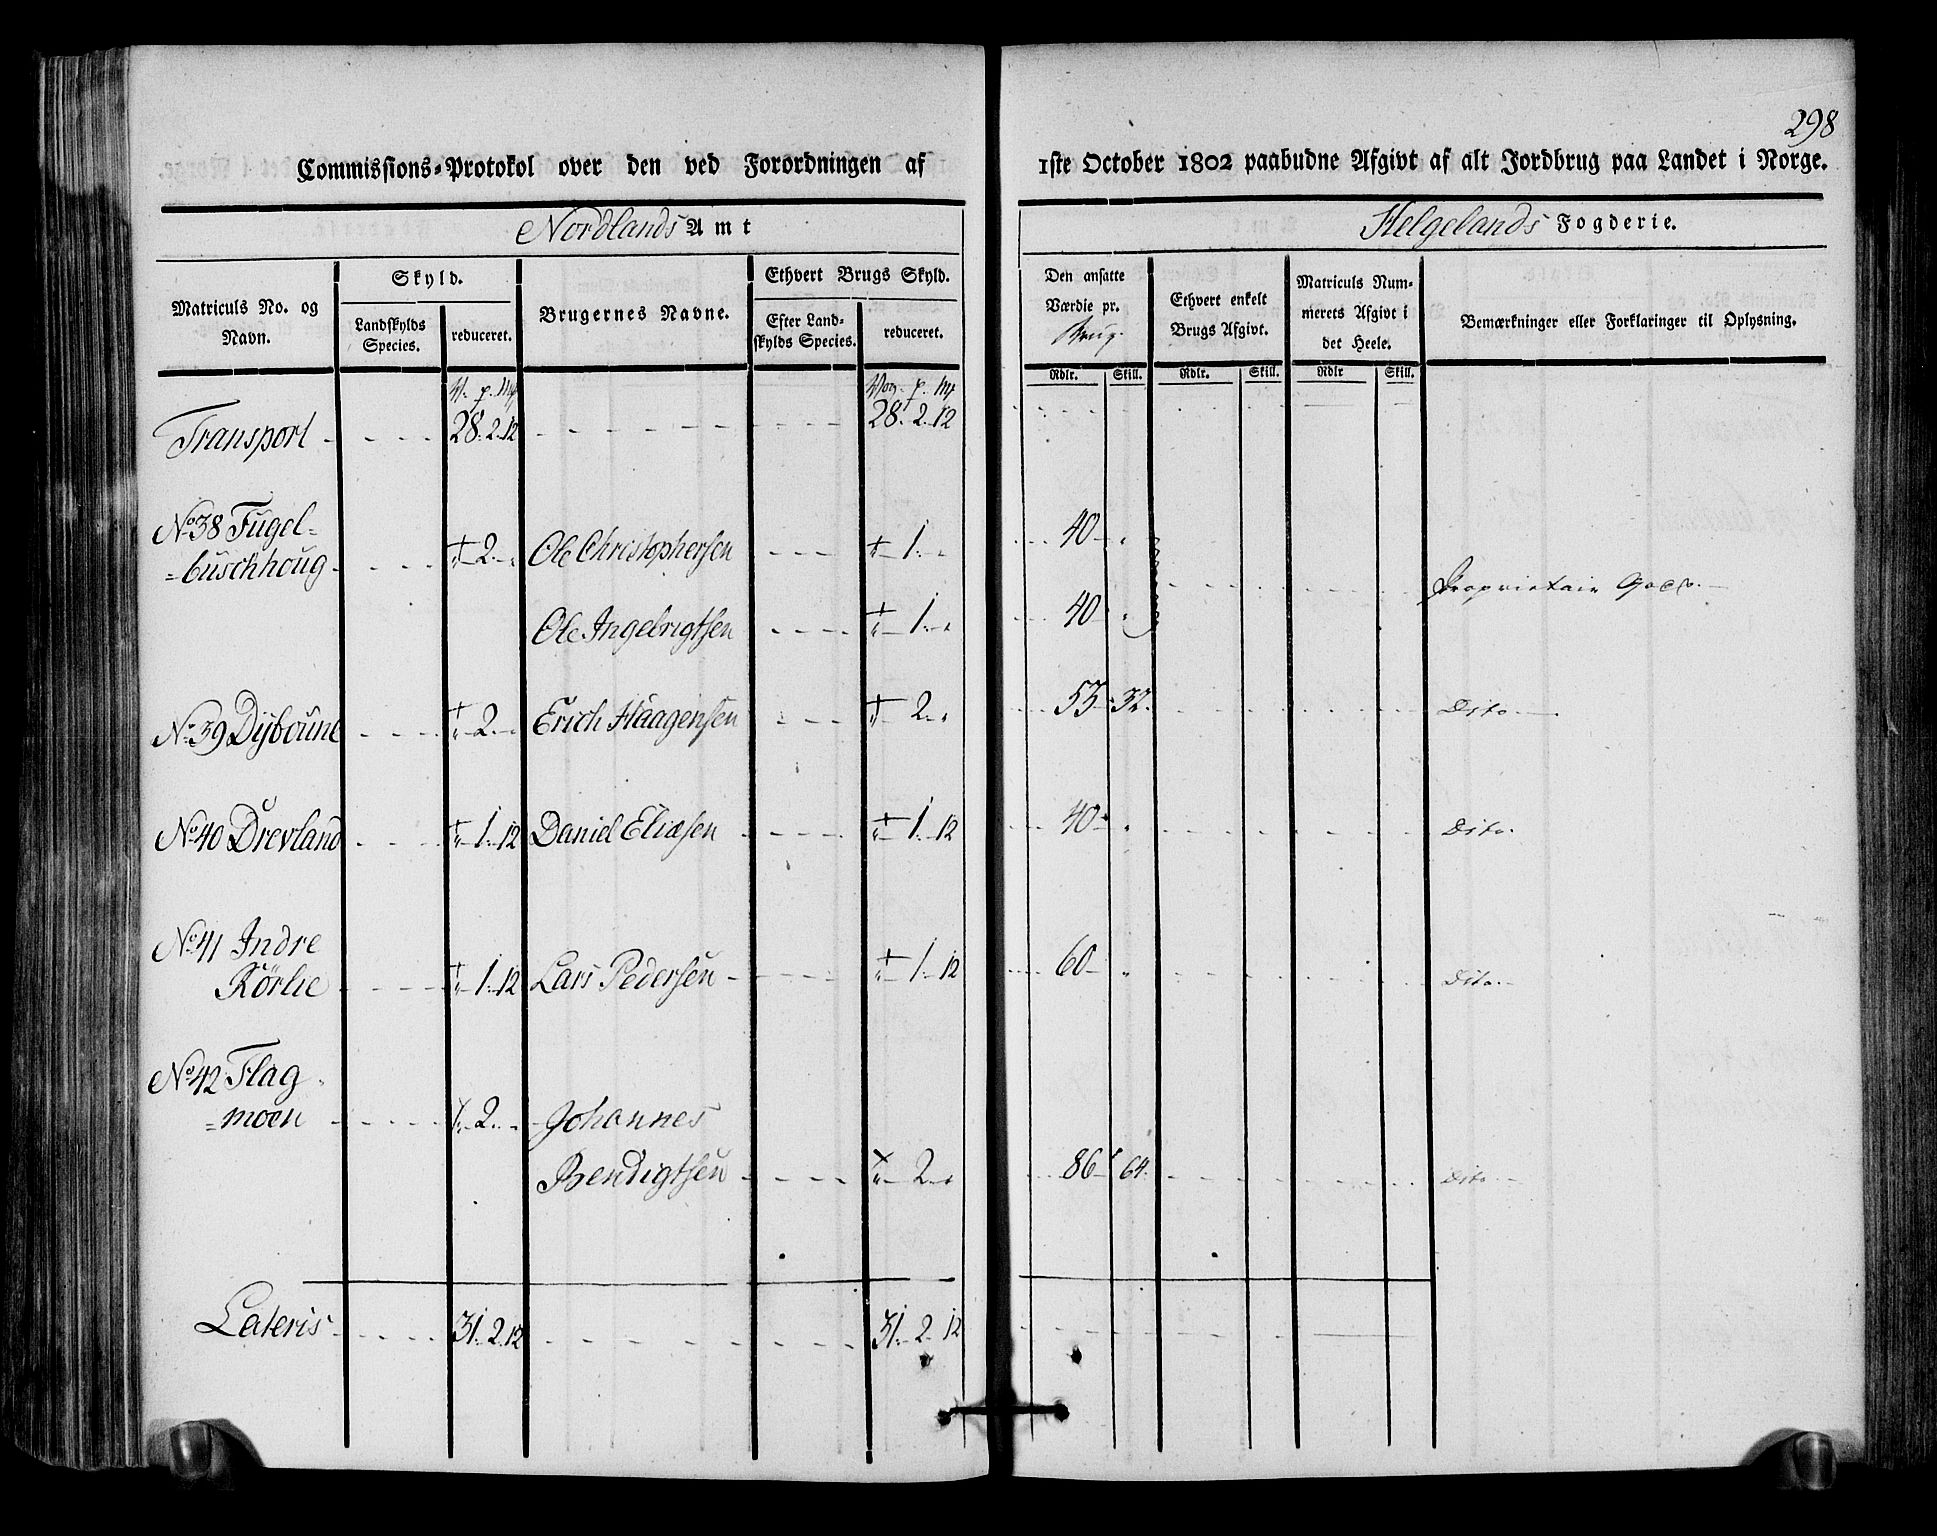 298
Commissions-Protokol over den ved Forordningen af 1ste October 1802 paabudne Afgivt af alt Jordbrug paa Landet i Norge.
Nordlands Amt Helgelands Fogderie.
Matriculs No. og Navn.
Skyld.
Landskylds Species.
reduceret.
Brugernes Navne.
Ethvert Brugs Skyld.
Efter Landskylds Species.
reduceret.
Den ansatte Værdie pr. Brug.
Ethvert enkelt Brugs Afgivt.
Matriculs Nummerets Afgivt i det Heele.
Bemærkninger eller Forklaringer til Oplysning.
Rdlr. Skill. Rdlr. Skill. Rdlr Skill.
Transport 28. 2. 12 28. 2. 12
No 38 Fugel=
=buschhoug 2. Ole Christophersen 1. 40 Proprietair Gods.
Ole Ingebrigtsen 1. 40
No 39 Dijboune 2. Erich Haagensen 2. 53 32. Dito.
No 40 Drevland 1. 12 Daniel Eliæsen 1. 12 40 Dito.
No 41 Indre
Rörlie 1. 12 Lars Pedersen 1. 12 60 Dito.
No 42 Flag
=moen 2. Johannes
Bendigtsen 2. 86 64. Dito.
Lateris 31. 2. 12 31. 2. 12